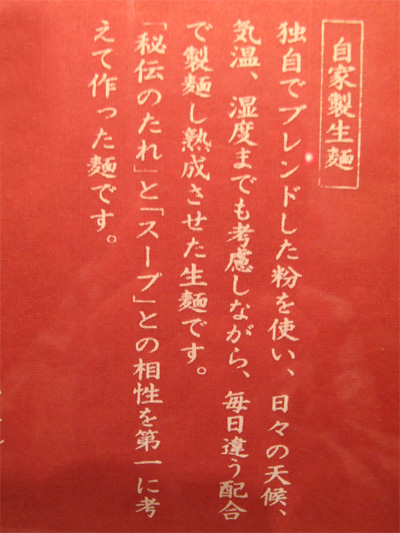 自家製生麺
独自でブレンドした粉を使い、日々の天候、
気温、湿度までも考慮しながら、毎日違う配合
で製麺し熟成させた生麺です。
「秘伝のたれ」と「スープ」との相性を第一に考
えて作った麺です。